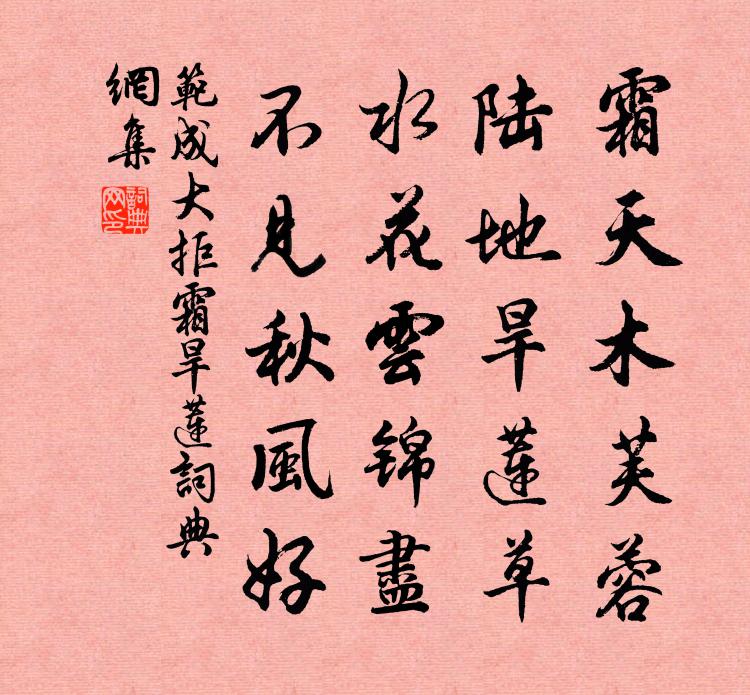 霜天木芙蓉
陆地旱蓮草
水花雲锦盡
不見秋風好
範成大拒霜旱蓮詞典
網集
詞典
网印